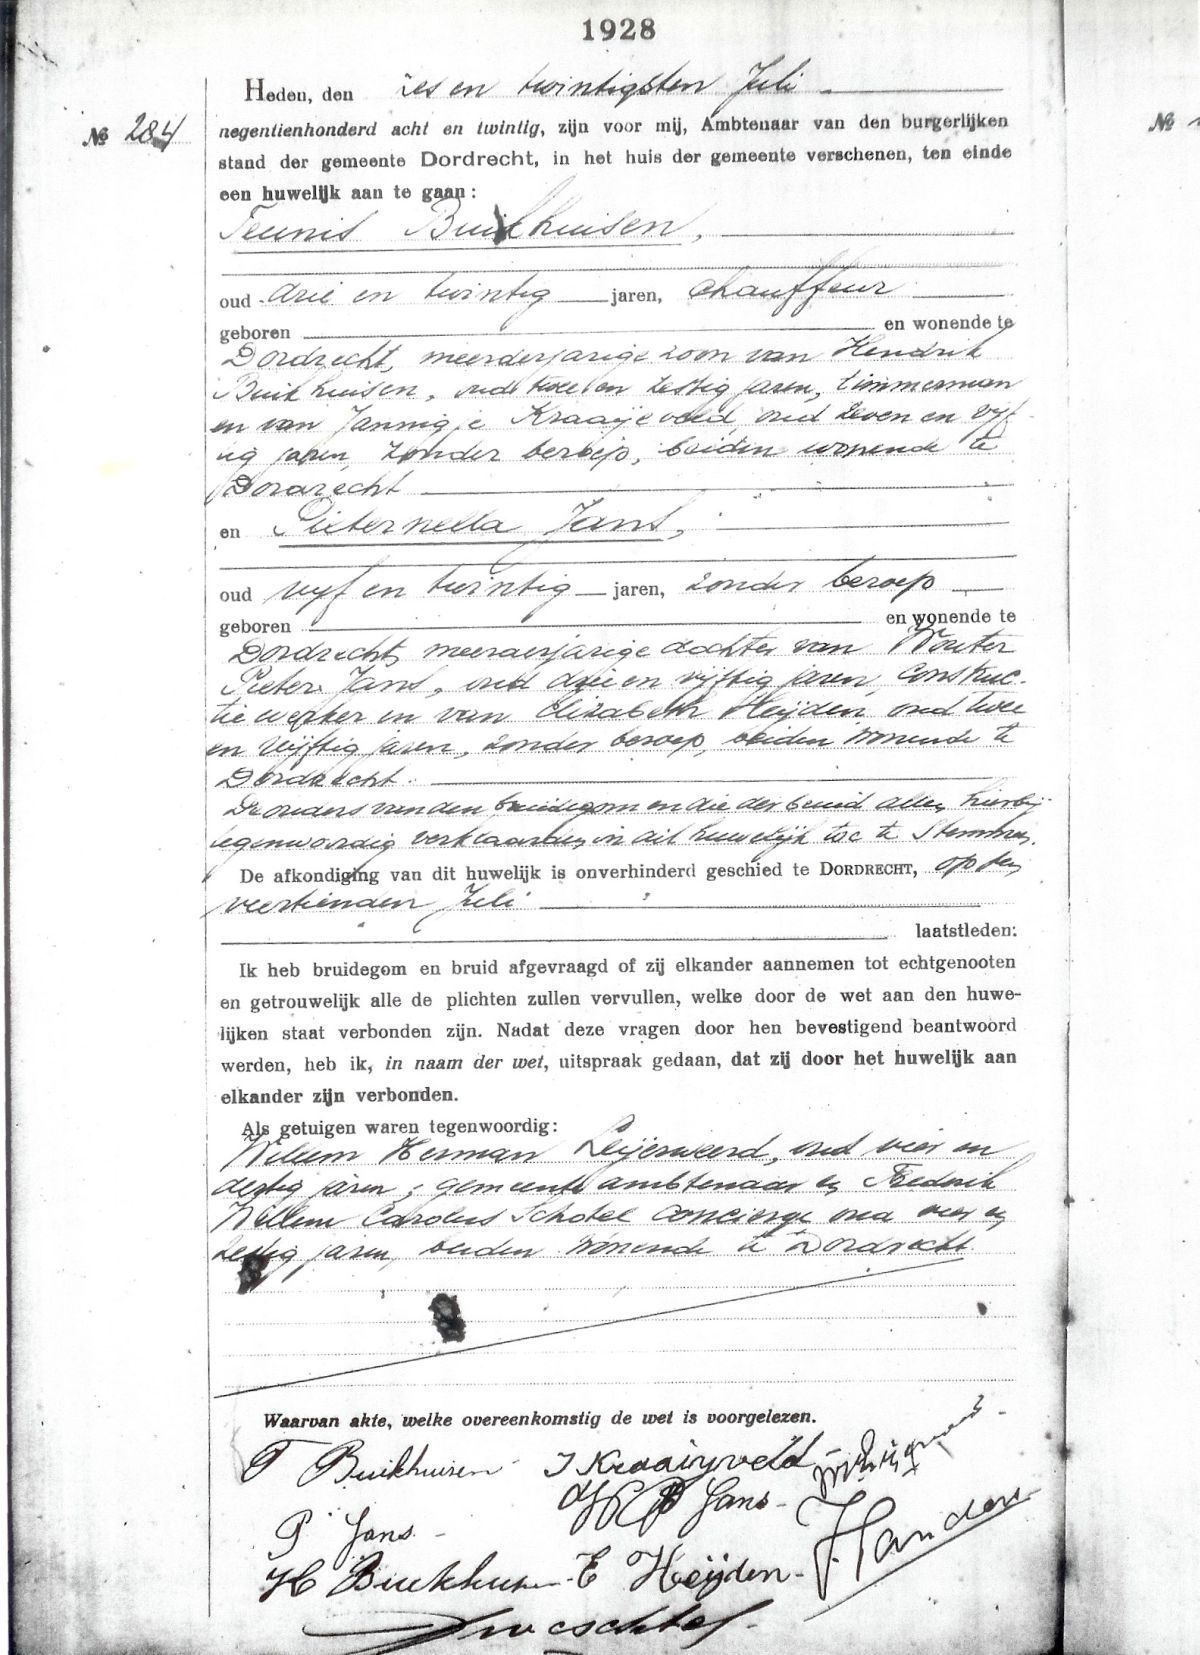 1928
Heden, den zes en twintigsten Juli
№ 284
negentienhonderd acht en twintig, zijn voor mij, Ambtenaar van den burgerlijken
stand der gemeente Dordrecht, in het huis der gemeente verschenen, ten einde
een huwelijk aan te gaan:
Teunis Buikhuisen,
oud drie en twintig jaren, chauffeur
geboren en wonende te
Dordrecht, meerderjarige zoon van Hendrik
Buikhuisen, oud twee en zestig jaren, timmerman
en van Jannigje Kraaijeveld, oud zeven en vijf-
tig jaren, zonder beroep, beiden wonende te
Dordrecht
en Pieternella Jans,
oud vijf en twintig jaren, zonder beroep
geboren en wonende te
Dordrecht, meerderjarige dochter van Wouter
Pieter Jans, oud drie en vijftig jaren, construc-
tiewerker en van Elizabeth Heijden, oud twee
en vijftig jaren, zonder beroep, beiden wonende te
Dordrecht.
De ouders van den bruidegom en die der bruid allen hierbij
tegenwoordig verklaarden in dit huwelijk toe te stemmen.
De afkondiging van dit huwelijk is onverhinderd geschied te DORDRECHT, op den
veertienden Juli
laatstleden:
Ik heb bruidegom en bruid afgevraagd of zij elkander aannemen tot echtgenooten
en getrouwelijk alle de plichten zullen vervullen, welke door de wet aan den huwe-
lijken staat verbonden zijn. Nadat deze vragen door hen bevestigend beantwoord
werden, heb ik, in naam der wet, uitspraak gedaan, dat zij door het huwelijk aan
elkander zijn verbonden.
Als getuigen waren tegenwoordig:
Willem Herman Leijerweerd, oud vier en
dertig jaren, gemeente ambtenaar en Frederik
Willem Carolus Schotel concierge oud vier en
zestig jaren, beiden wonende te Dordrecht
Waarvan akte, welke overeenkomstig de wet is voorgelezen.
T Buikhuisen J Kraaijveld
P Jans W P Jans
H Buikhuisen E Heijden
№